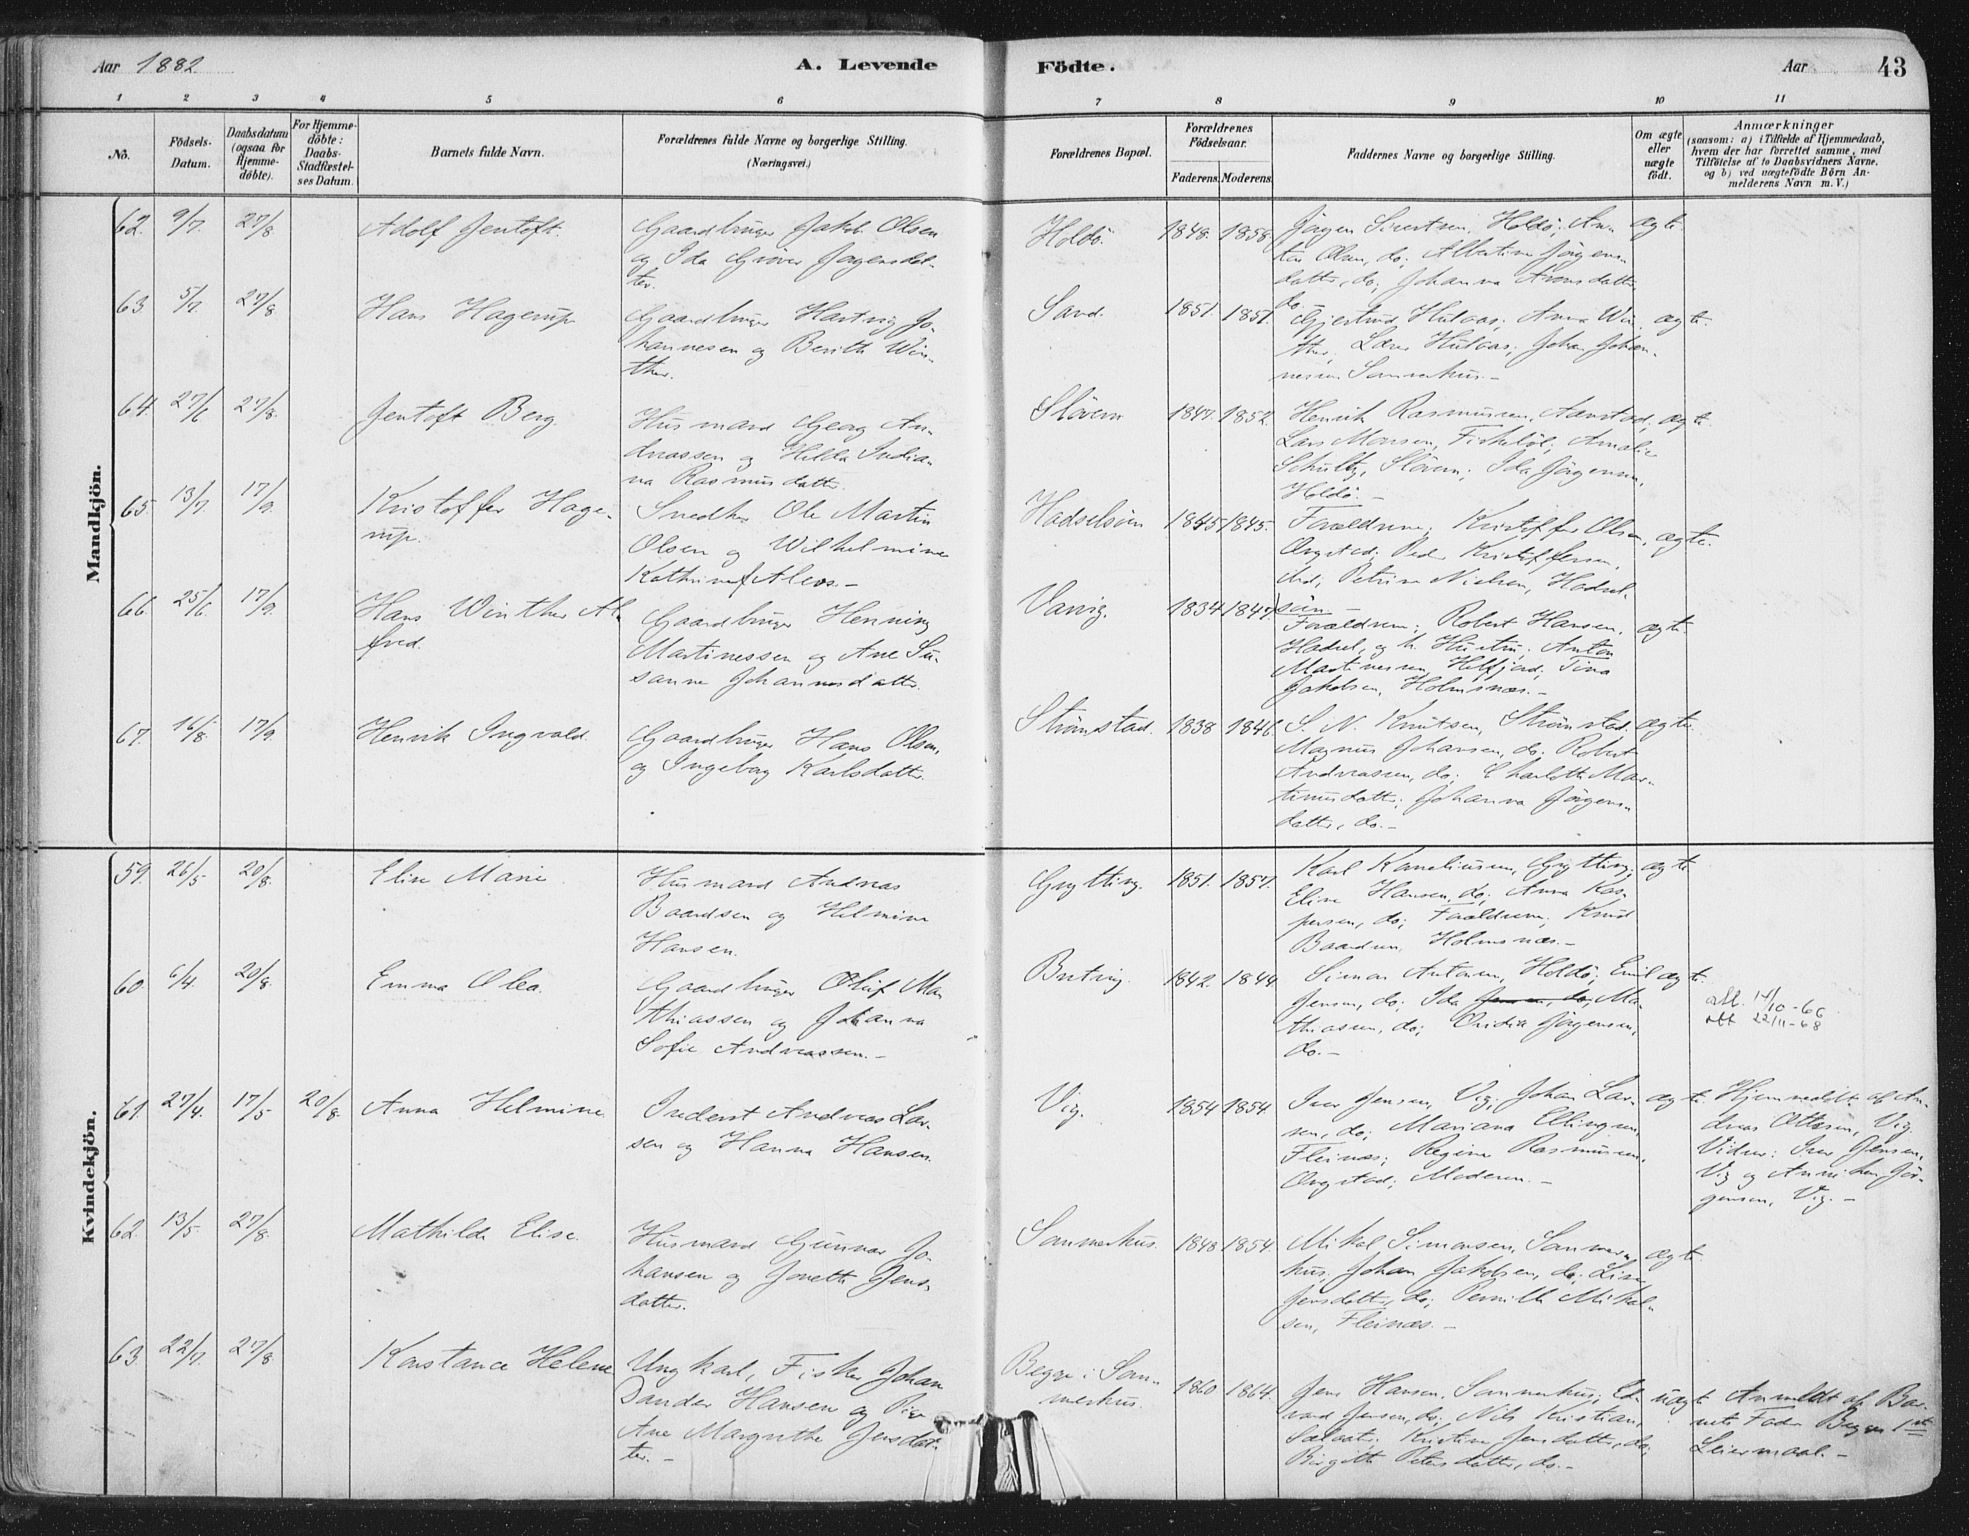 Aar 1882
A. Levende
Födte.
Aar
43
1 2 3 4 5 6 7 8 9 10 11
No.
Födsels-
Datum.
Daabsdatum
(ogsaa for
Hjemme-
döbte).
For Hjemme-
döbte:
Daabs-
Stadfæstel-
ses Datum.
Barnets fulde Navn.
Forældrenes fulde Navne og borgerlige Stilling.
(Næringsvei.)
Forældrenes Bopæl.
Forældrenes
Födselsaar.
Faderens. Moderens.
Faddernes Navne og borgerlige Stilling.
Om ægte
eller
uægte
födt.
Anmærkninger
(saasom: a) i Tilfælde af Hjemmedaab,
hvem der har forrettet samme, med
Tilföielse af to Daabsvidners Navne,
og b) ved uægtefödte Börn An-
melderens Navn m. V.)
Mandkjön.
62. 9/7. 27/8. Adolf Jentoft.
Gaardbruger Jakob Olsen
og Ida Gröver Jörgensdat-
ter.
Holdö. 1848. 1858.
Jörgen Sivertsen, Holdö; An-
ton Olsen, do; Albertine Jörgens-
datter, do; Johanna Aronsdatter
do.
ægte.
63. 5/7. 27/8. Hans Hagerup
Gaardbruger Hartvig Jo-
hannesen og Berith Win-
ther.
Sand. 1851. 1851.
Gjertrud Hulaas; Anna Win-
ther, Hulaas; Johan Johan-
nesen Sommerhus.-
ægte.
64. 27/6 27/8. Jentoft Berg.
Husmand Georg An-
dreassen og Hilda India-
na Rasmusdatter.
Slövern 1847. 1852.
Henrik Rasmussen, Aanstad;
Lars Monsen, Fiskeböl; Amalie
Schultz, Slövern; Ida Jörgensen,
Holdö.-
ægte.
65. 13/7. 17/9. Kristoffer Hage-
rup.
Snedker Ole Martin
Olsen og Wilhelmine
Kathrine Aleos.-
Hadselöen 1845 1845.
Forældrene; Kristoffer Olsen,
Ongstad; Peder Kristoffersen,
ibid, Petrine Nielsen, Hadsel-
öen.-
ægte.
66. 25/6. 17/9. Hans Winther Al-
fred.
Gaardbruger Henning
Martinessen og Ane Su-
sanne Johannesdatter.
Varvig. 1834 1847.
Forældrene; Robert Hansen,
Hadsel, og h. Hustru; Anton
Martinessen, Helfjord; Tina
Jakobsen, Holmsnæs.-
ægte.
67. 16/8. 17/9. Henrik Ingvald.
Gaardbruger Hans Olsen,
og Ingeborg Karlsdatter.
Strömstad. 1838 1846.
S. N. Knutsen, Strömstad.
Magnus Johansen, do; Robert
Andreassen, do; Charlotte Mar-
tinusdatter; Johanna Jörgens-
datter, do.-
ægte.
Kvindekjön.
59. 26/5 20/8. Elise Marie
Husmand Andreas
Baardsen og Helmine
Hansen.
Grytting. 1851. 1857.
Karl Korneliussen, Grytting;
Elise Hansen, do; Anna Kas-
persen, do; Forældrene; Knud
Baardsen, Holmsnæs.-
ægte.
60. 6/4. 20/8. Emma Olea.
Gaardbruger Oluf Ma-
thiassen og Johanna
Sofie Andreassen.-
Butvig. 1842. 1844.
Simon Antonsen, Holdö; Emil
Jensen, do; Ida Jensen, do; Ma-
thiassen, do; Ovidia Jörgensen,
do.-
ægte.
att. 14/10-66
att 22/11-68
61. 27/4. 17/5 20/8. Anna Helmine
Inderst Andreas Lar-
sen og Hanna Hansen.
Vig. 1854 1854
Iver Jensen, Vig; Johan Lar-
sen, do; Mariana Ellingsen,
Fleinæs; Regine Rasmussen,
Ongstad; Moderen.-
ægte.
Hjemmedöbt af An-
dreas Ottesen, Vig.
Vidner: Iver Jensen,
Vig og Anne Jör-
gensen, Vig.-
62. 13/5. 27/8. Mathilde Elise.
Husmand Gunnar Jo-
hansen og Jonette Jens-
datter.
Sommerhus. 1848 1854.
Mikal Simonsen, Sommer-
hus, Johan Jakobsen, do; Lina
Jensdatter, do; Pernille Mikal-
sen, Fleinæs.-
ægte.
63. 22/7. 27/8. Konstance Helene
Ungkarl, Fisker Johan
Sander Hansen og Pige
Ane Margrethe Jensdat-
ter.-
Begge: Som-
merhus.
1860 1864.
Jens Hansen, Sommerhus; Ed-
vard Jensen, do; Nils Kristian,
Kristine Jensdatter, do;
Birgitte Petersdatter, do.-
uægte
Anmeldt af Bar-
nets Fader Begges 1ste
Leiermaal.-